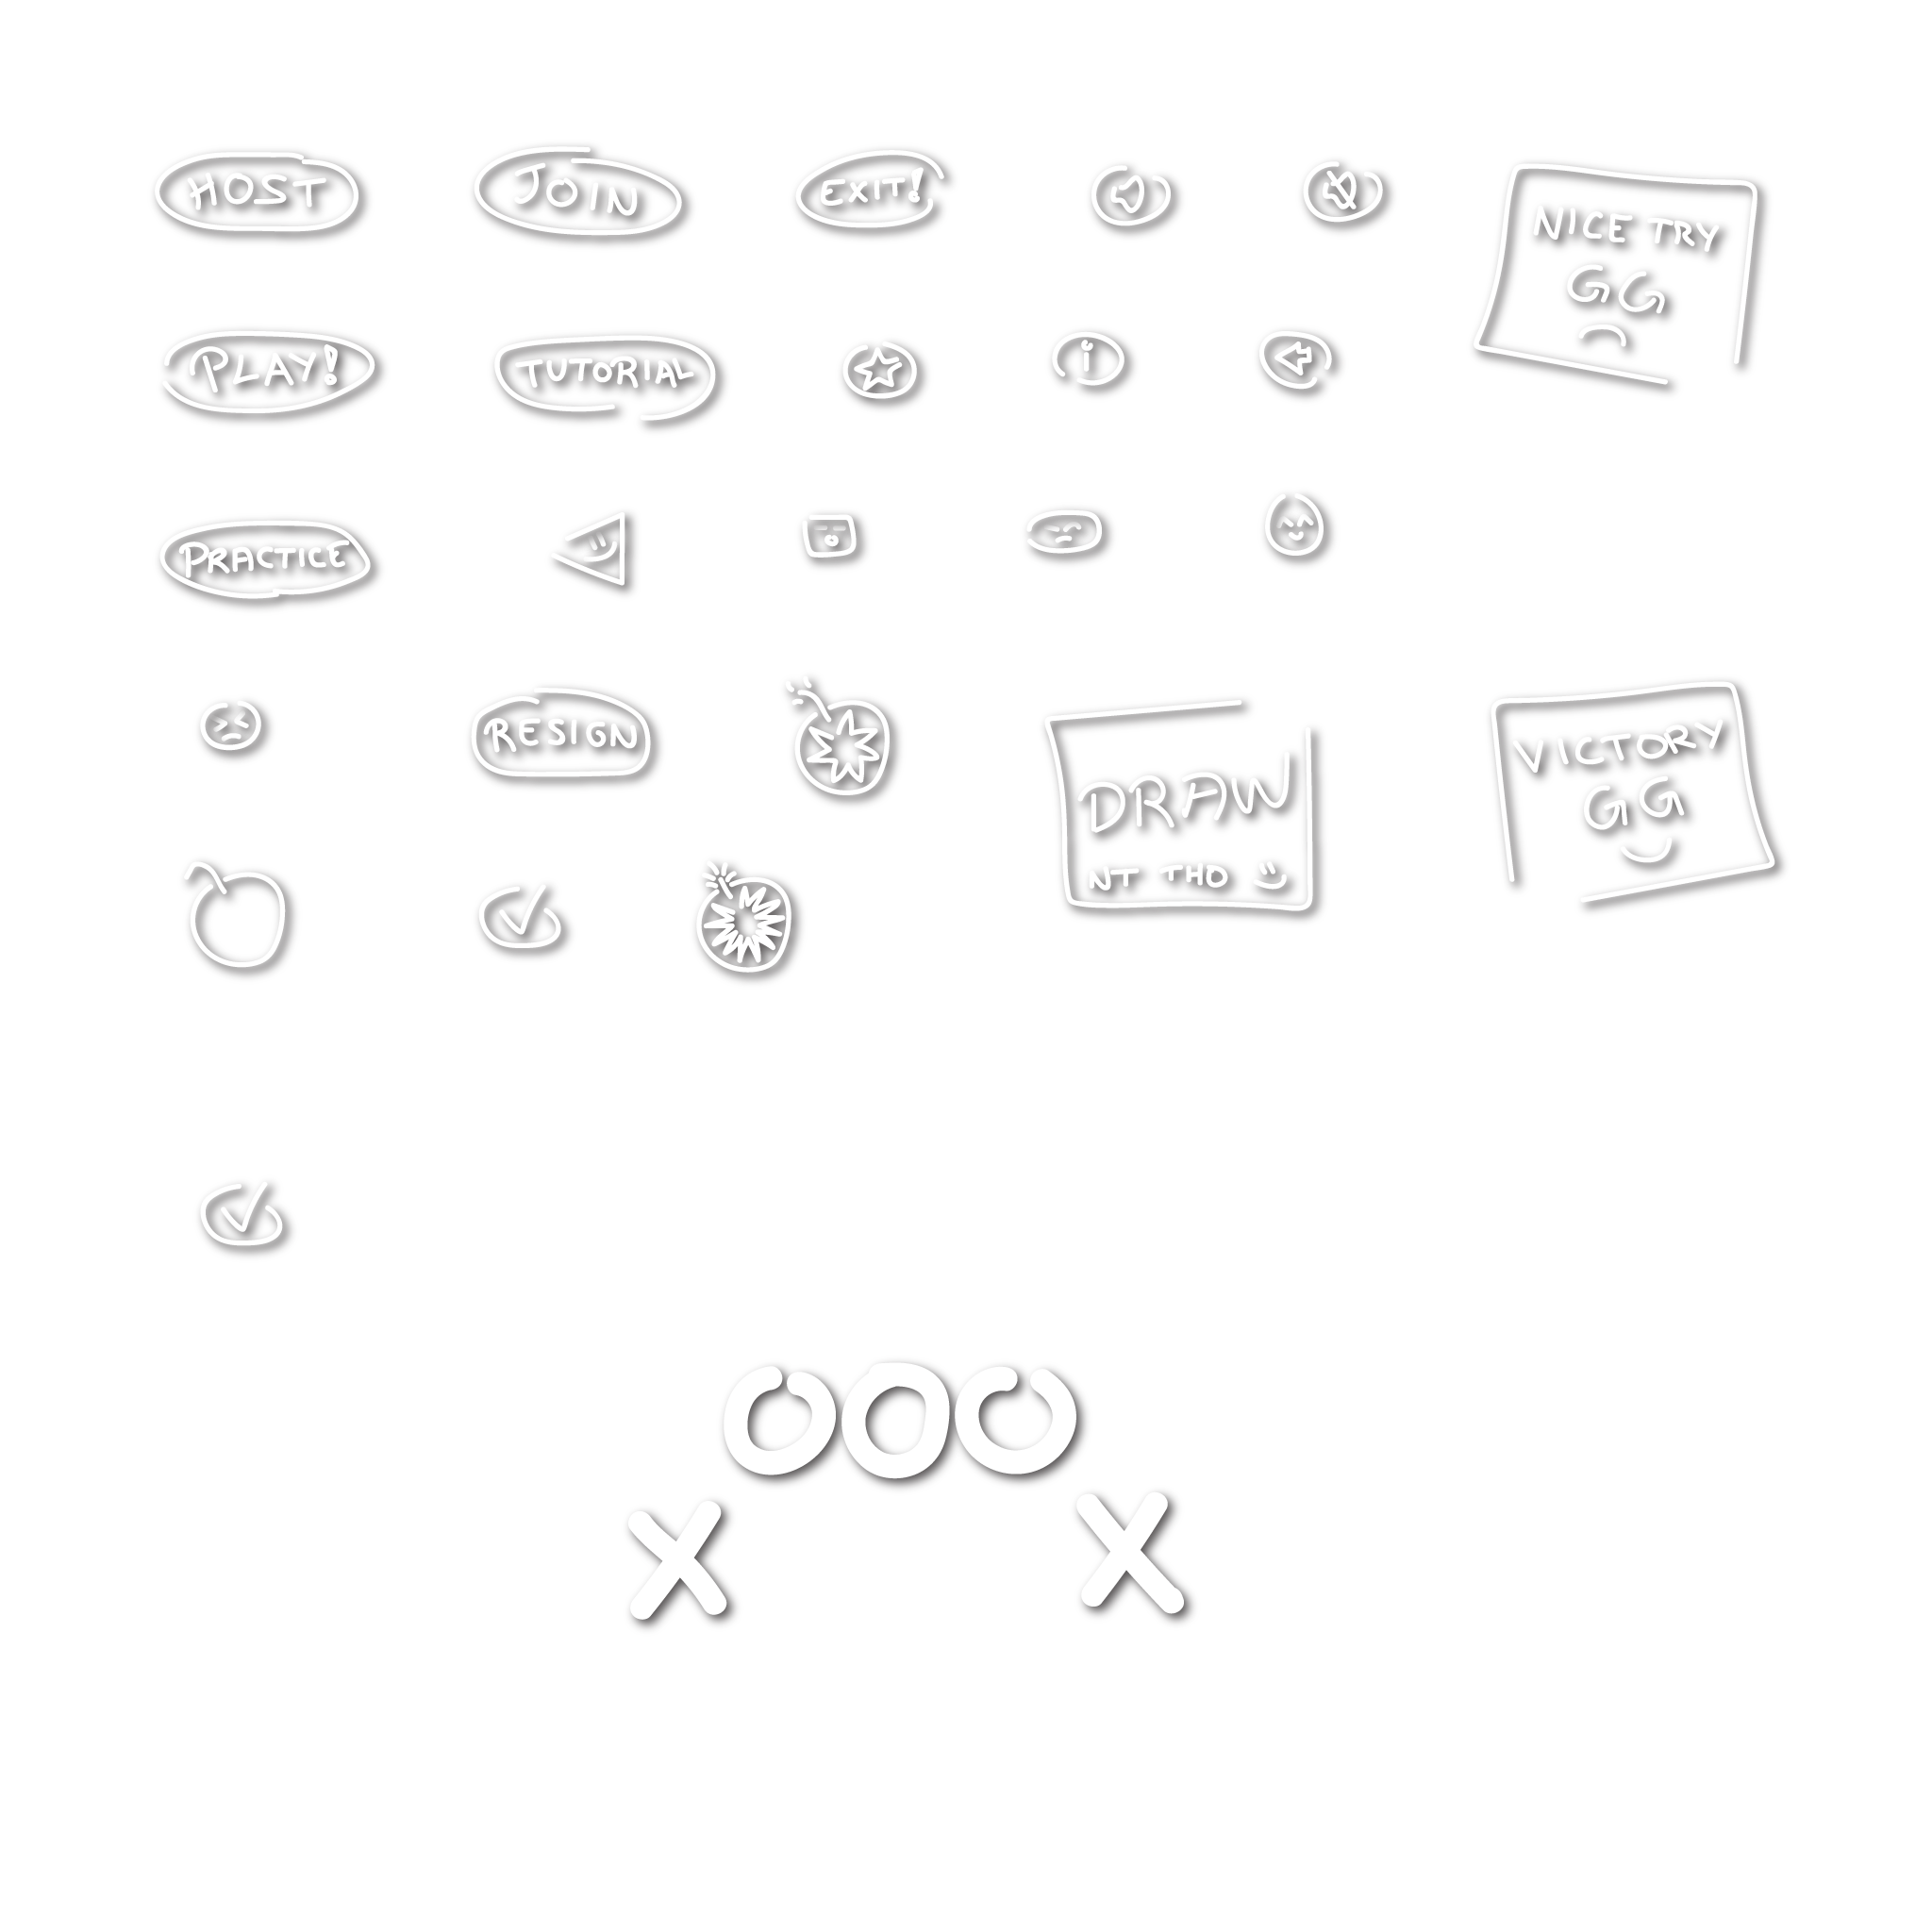 HOST
JOIN
EXIT!
NICE TRY
GG
PLAY!
TUTORIAL
i
PRACTICE
RESIGN
DRAW
NT THO
VICTORY
GG
OOO
X X